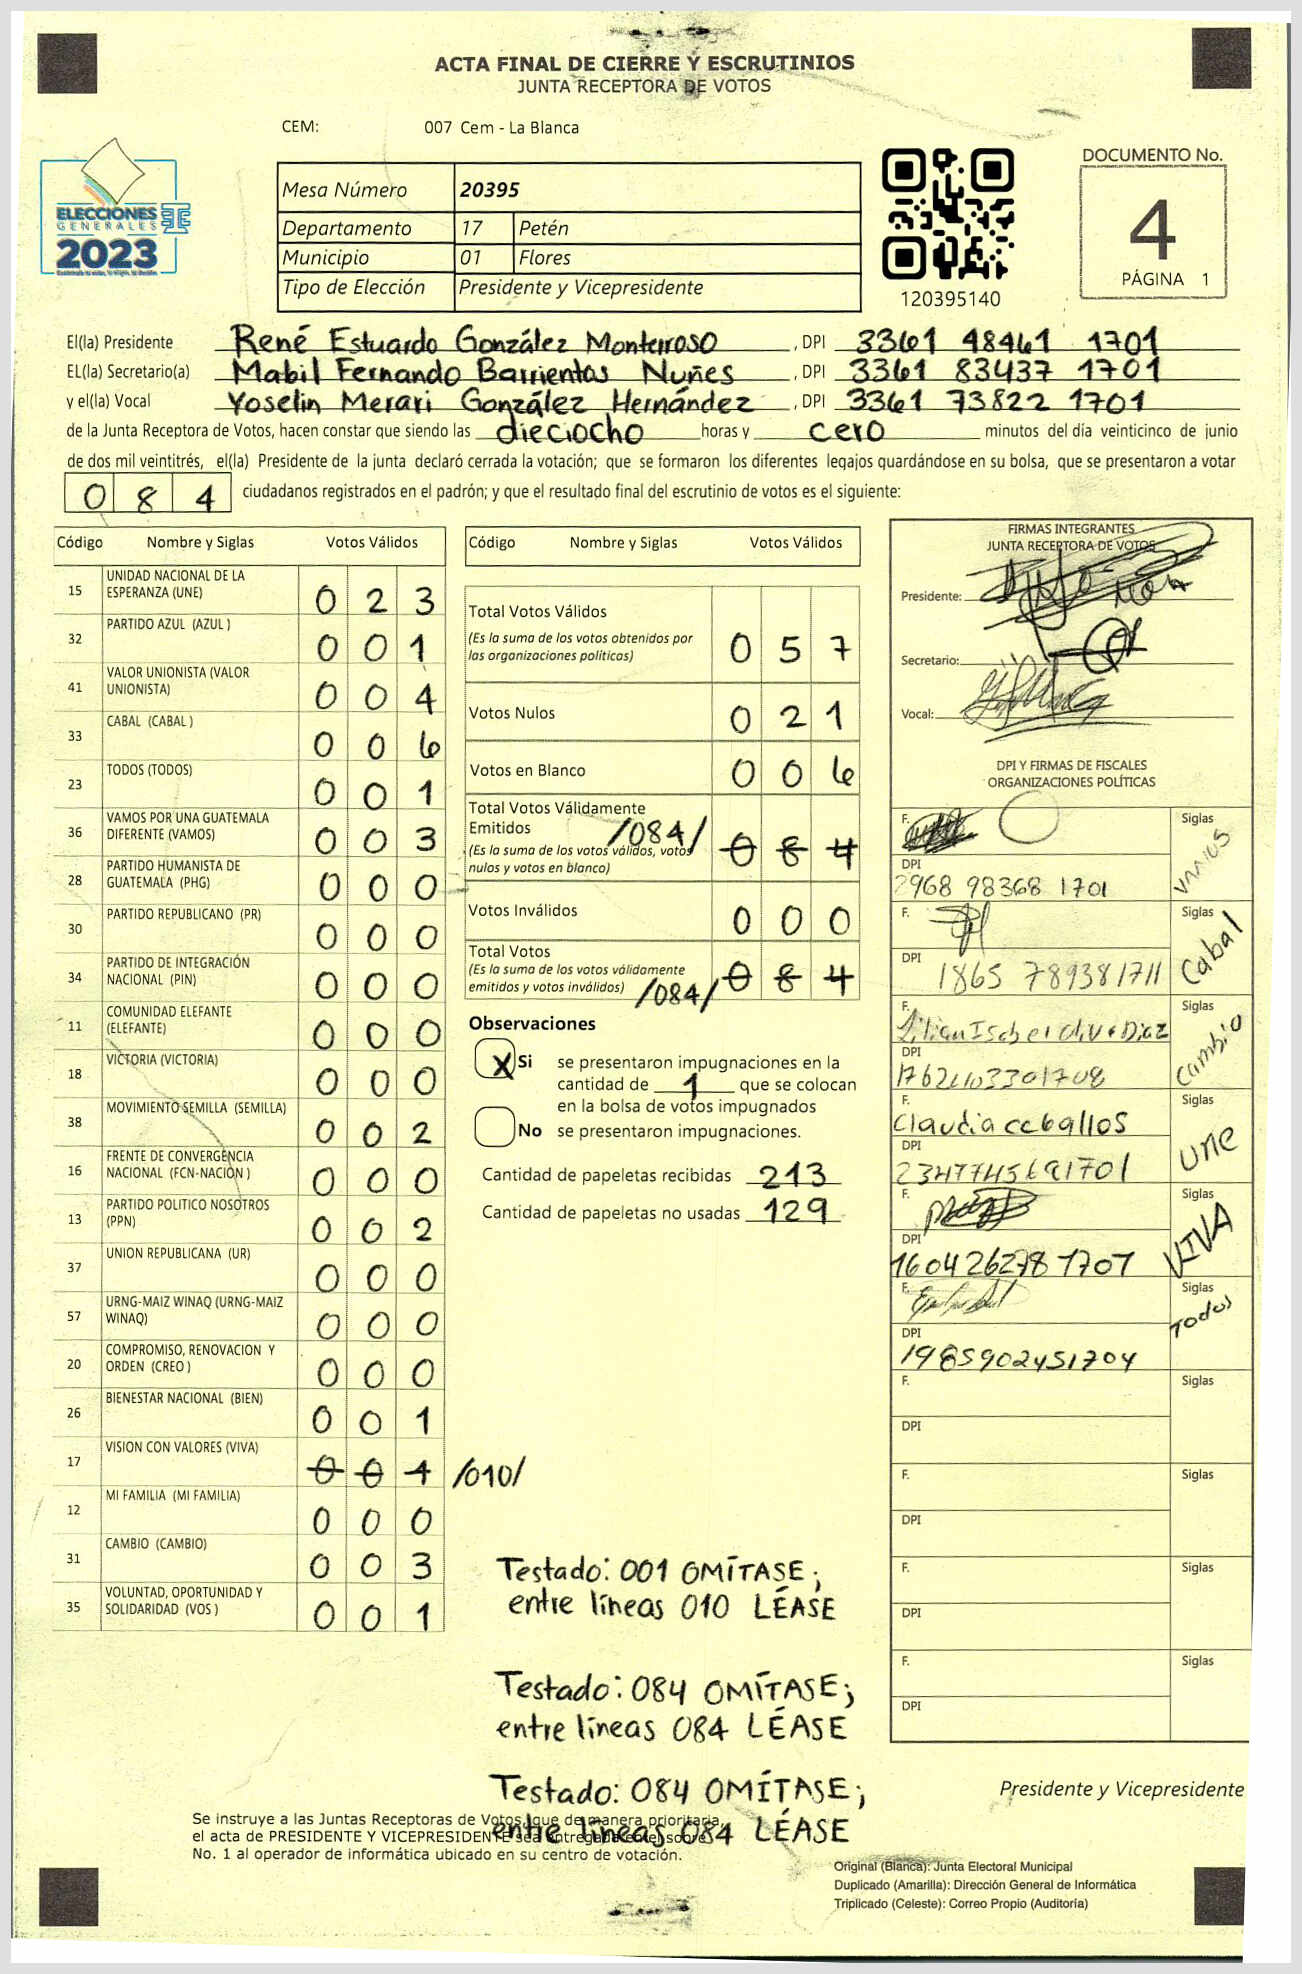 ACTA FINAL DE CIERRE Y ESCRUTINIOS
JUNTA RECEPTORA DE VOTOS
CEM: 007 Cem - La Blanca
ELECCIONES
GENERALES
2023
Mesa Número 20395
Departamento 17 Petén
Municipio 01 Flores
Tipo de Elección Presidente y Vicepresidente
120395140
DOCUMENTO No.
4
PÁGINA 1
El(la) Presidente René Estuardo González Monterroso , DPI 3361 48461 1701
EL(la) Secretario(a) Mabil Fernando Barrientos Nuñes , DPI 3361 83437 1701
y el(la) Vocal Yoselin Merari González Hernández , DPI 3361 73822 1701
de la Junta Receptora de Votos, hacen constar que siendo las dieciocho horas y cero minutos del día veinticinco de junio
de dos mil veintitrés, el(la) Presidente de la junta declaró cerrada la votación; que se formaron los diferentes legajos guardándose en su bolsa, que se presentaron a votar
0 8 4 ciudadanos registrados en el padrón; y que el resultado final del escrutinio de votos es el siguiente:
Código Nombre y Siglas Votos Válidos
15 UNIDAD NACIONAL DE LA
ESPERANZA (UNE) 0 2 3
32 PARTIDO AZUL (AZUL ) 0 0 1
41 VALOR UNIONISTA (VALOR
UNIONISTA) 0 0 4
33 CABAL (CABAL ) 0 0 6
23 TODOS (TODOS) 0 0 1
36 VAMOS POR UNA GUATEMALA
DIFERENTE (VAMOS) 0 0 3
28 PARTIDO HUMANISTA DE
GUATEMALA (PHG) 0 0 0
30 PARTIDO REPUBLICANO (PR) 0 0 0
34 PARTIDO DE INTEGRACIÓN
NACIONAL (PIN) 0 0 0
11 COMUNIDAD ELEFANTE
(ELEFANTE) 0 0 0
18 VICTORIA (VICTORIA) 0 0 0
38 MOVIMIENTO SEMILLA (SEMILLA) 0 0 2
16 FRENTE DE CONVERGENCIA
NACIONAL (FCN-NACIÓN ) 0 0 0
13 PARTIDO POLITICO NOSOTROS
(PPN) 0 0 2
37 UNION REPUBLICANA (UR) 0 0 0
57 URNG-MAIZ WINAQ (URNG-MAIZ
WINAQ) 0 0 0
20 COMPROMISO, RENOVACION Y
ORDEN (CREO ) 0 0 0
26 BIENESTAR NACIONAL (BIEN) 0 0 1
17 VISION CON VALORES (VIVA) 0 0 1 /010/
12 MI FAMILIA (MI FAMILIA) 0 0 0
31 CAMBIO (CAMBIO) 0 0 3
35 VOLUNTAD, OPORTUNIDAD Y
SOLIDARIDAD (VOS ) 0 0 1
Código Nombre y Siglas Votos Válidos
Total Votos Válidos
(Es la suma de los votos obtenidos por
las organizaciones políticas) 0 5 7
Votos Nulos 0 2 1
Votos en Blanco 0 0 6
Total Votos Válidamente
Emitidos /084/
(Es la suma de los votos válidos, votos
nulos y votos en blanco) 0 8 4
Votos Inválidos 0 0 0
Total Votos
(Es la suma de los votos válidamente
emitidos y votos inválidos) /084/ 0 8 4
Observaciones
X Si se presentaron impugnaciones en la
cantidad de 1 que se colocan
en la bolsa de votos impugnados
No se presentaron impugnaciones.
Cantidad de papeletas recibidas 213
Cantidad de papeletas no usadas 129
Testado: 001 OMÍTASE;
entre líneas 010 LÉASE
Testado: 084 OMÍTASE;
entre líneas 084 LÉASE
Testado: 084 OMÍTASE;
entre líneas 084 LÉASE
FIRMAS INTEGRANTES
JUNTA RECEPTORA DE VOTOS
Presidente:
Secretario:
Vocal:
DPI Y FIRMAS DE FISCALES
ORGANIZACIONES POLÍTICAS
F. Siglas
DPI
2968 98368 1701 vamos
F. Siglas
DPI Cabal
1865 789381711
F. Siglas
Lilian Isabel
DPI Cambio
F. Siglas
Claudia ceballos
DPI une
F. Siglas
DPI VIVA
1604262781707
F. Siglas
DPI Todos
1985902451704
F. Siglas
DPI
F. Siglas
DPI
F. Siglas
DPI
F. Siglas
DPI
Presidente y Vicepresidente
Se instruye a las Juntas Receptoras de Votos, que de manera prioritaria,
el acta de PRESIDENTE Y VICEPRESIDENTE sea entregada en el sobre
No. 1 al operador de informática ubicado en su centro de votación.
Original (Blanca): Junta Electoral Municipal
Duplicado (Amarilla): Dirección General de Informática
Triplicado (Celeste): Correo Propio (Auditoría)